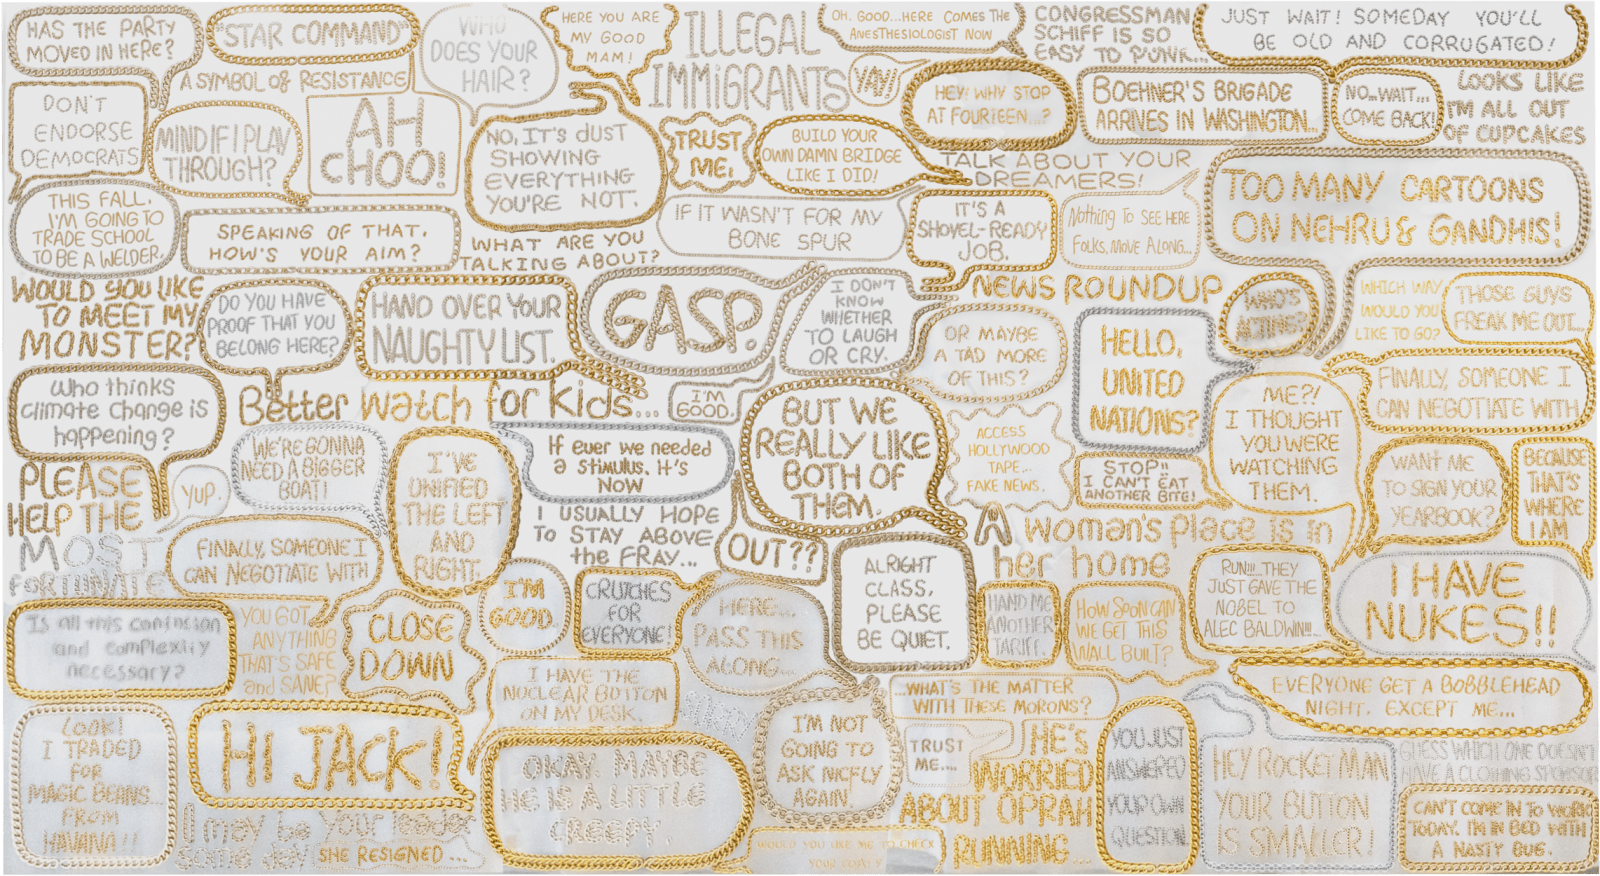 HAS THE PARTY
MOVED IN HERE?
"STAR COMMAND"
A SYMBOL OF RESISTANCE
WHO
DOES YOUR
HAIR?
HERE YOU ARE
MY GOOD
MAM!
ILLEGAL
IMMIGRANTS
OH, GOOD...HERE COMES THE
ANESTHESIOLOGIST NOW
YAY!
CONGRESSMAN
SCHIFF IS SO
EASY TO PUNK...
JUST WAIT! SOMEDAY YOU'LL
BE OLD AND CORRUGATED!
DON'T
ENDORSE
DEMOCRATS
MIND IF I PLAY
THROUGH?
AH
CHOO!
NO, IT'S JUST
SHOWING
EVERYTHING
YOU'RE NOT.
TRUST
ME,
BUILD YOUR
OWN DAMN BRIDGE
LIKE I DID!
HEY! WHY STOP
AT FOURTEEN...?
BOEHNER'S BRIGADE
ARRIVES IN WASHINGTON...
NO...WAIT...
COME BACK!
LOOKS LIKE
I'M ALL OUT
OF CUPCAKES
TALK ABOUT YOUR
DREAMERS!
THIS FALL,
I'M GOING TO
TRADE SCHOOL
TO BE A WELDER.
SPEAKING OF THAT,
HOW'S YOUR AIM?
WHAT ARE YOU
TALKING ABOUT?
IF IT WASN'T FOR MY
BONE SPUR
IT'S A
SHOVEL-READY
JOB.
Nothing To SEE HERE
FOLKS, MOVE ALONG...
TOO MANY CARTOONS
ON NEHRU & GANDHIS!
WOULD YOU LIKE
TO MEET MY
MONSTER?
DO YOU HAVE
PROOF THAT YOU
BELONG HERE?
HAND OVER YOUR
NAUGHTY LIST.
GASP.
I DON'T
KNOW
WHETHER
TO LAUGH
OR CRY.
NEWS ROUNDUP
OR MAYBE
A TAD MORE
OF THIS?
HELLO,
UNITED
NATIONS?
WHO'S
ACTING?
WHICH WAY
WOULD YOU
LIKE TO GO?
THOSE GUYS
FREAK ME OUT...
Who thinks
climate change is
happening?
Better watch for kids...
I'M
GOOD.
BUT WE
REALLY LIKE
BOTH OF
THEM.
ACCESS
HOLLYWOOD
TAPE...
FAKE NEWS.
STOP!!
I CAN'T EAT
ANOTHER BITE!
ME?!
I THOUGHT
YOU WERE
WATCHING
THEM.
FINALLY, SOMEONE I
CAN NEGOTIATE WITH
PLEASE
HELP THE
MOST
FORTUNATE
YUP.
WE'RE GONNA
NEED A BIGGER
BOAT!
I'VE
UNIFIED
THE LEFT
AND
RIGHT.
If ever we needed
a stimulus, it's
NOW
I USUALLY HOPE
TO STAY ABOVE
the FRAY...
OUT??
WANT ME
TO SIGN YOUR
YEARBOOK?
BECAUSE
THAT'S
WHERE
I AM
A woman's place is in
her home
FINALLY, SOMEONE I
CAN NEGOTIATE WITH
I'M
GOOD.
CRUTCHES
FOR
EVERYONE!
HERE...
PASS THIS
ALONG...
ALRIGHT
CLASS,
PLEASE
BE QUIET.
HAND ME
ANOTHER
TARIFF.
HOW SOON CAN
WE GET THIS
WALL BUILT?
RUN!!!...THEY
JUST GAVE THE
NOBEL TO
ALEC BALDWIN!!!...
I HAVE
NUKES!!
Is all this confusion
and complexity
necessary?
YOU GOT
ANYTHING
THAT'S SAFE
and SANE?
CLOSE
DOWN
I HAVE THE
NUCLEAR BUTTON
ON MY DESK.
...WHAT'S THE MATTER
WITH THESE MORONS?
EVERYONE GET A BOBBLEHEAD
NIGHT. EXCEPT ME...
LOOK!
I TRADED
FOR
MAGIC BEANS...
FROM
HAVANA!!
HI JACK!
I may be your leader
some day
SHE RESIGNED...
OKAY. MAYBE
HE IS A LITTLE
CREEPY.
I'M NOT
GOING TO
ASK NICELY
AGAIN.
TRUST
ME....
HE'S
WORRIED
ABOUT OPRAH
RUNNING....
YOU JUST
ANSWERED
YOUR OWN
QUESTION.
HEY ROCKET MAN
YOUR BUTTON
IS SMALLER!
GUESS WHICH ONE DOESN'T
HAVE A CLOTHING SPONSOR
CAN'T COME IN TO WORK
TODAY. I'M IN BED WITH
A NASTY BUG.
WOULD YOU LIKE ME TO CHECK
YOUR COATS